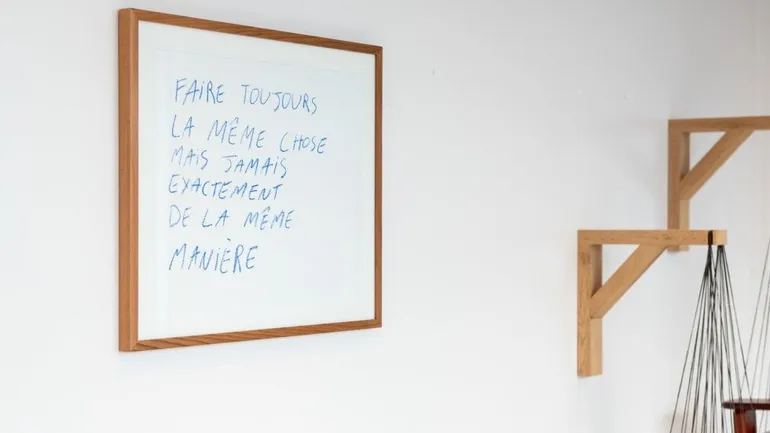 FAIRE TOUJOURS
LA MÊME CHOSE
MAIS JAMAIS
EXACTEMENT
DE LA MÊME
MANIÈRE